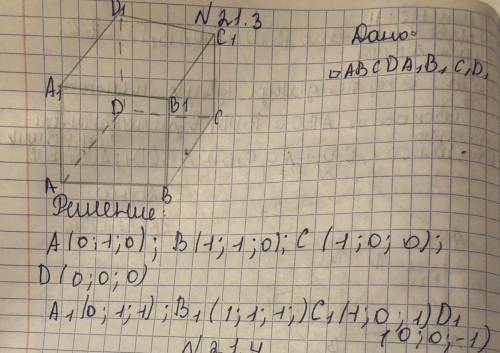 N 21.3
Дано:
ABCDA₁B₁C₁D₁
D₁
C₁
A₁
D
B₁
C
A
B
Решение:
A(0;1;0); B(1;1;0); C(1;0;0);
D(0;0;0)
A₁(0;1;1); B₁(1;1;1;) C₁(1;0;1) D₁
(0;0;-1)
N 21.4